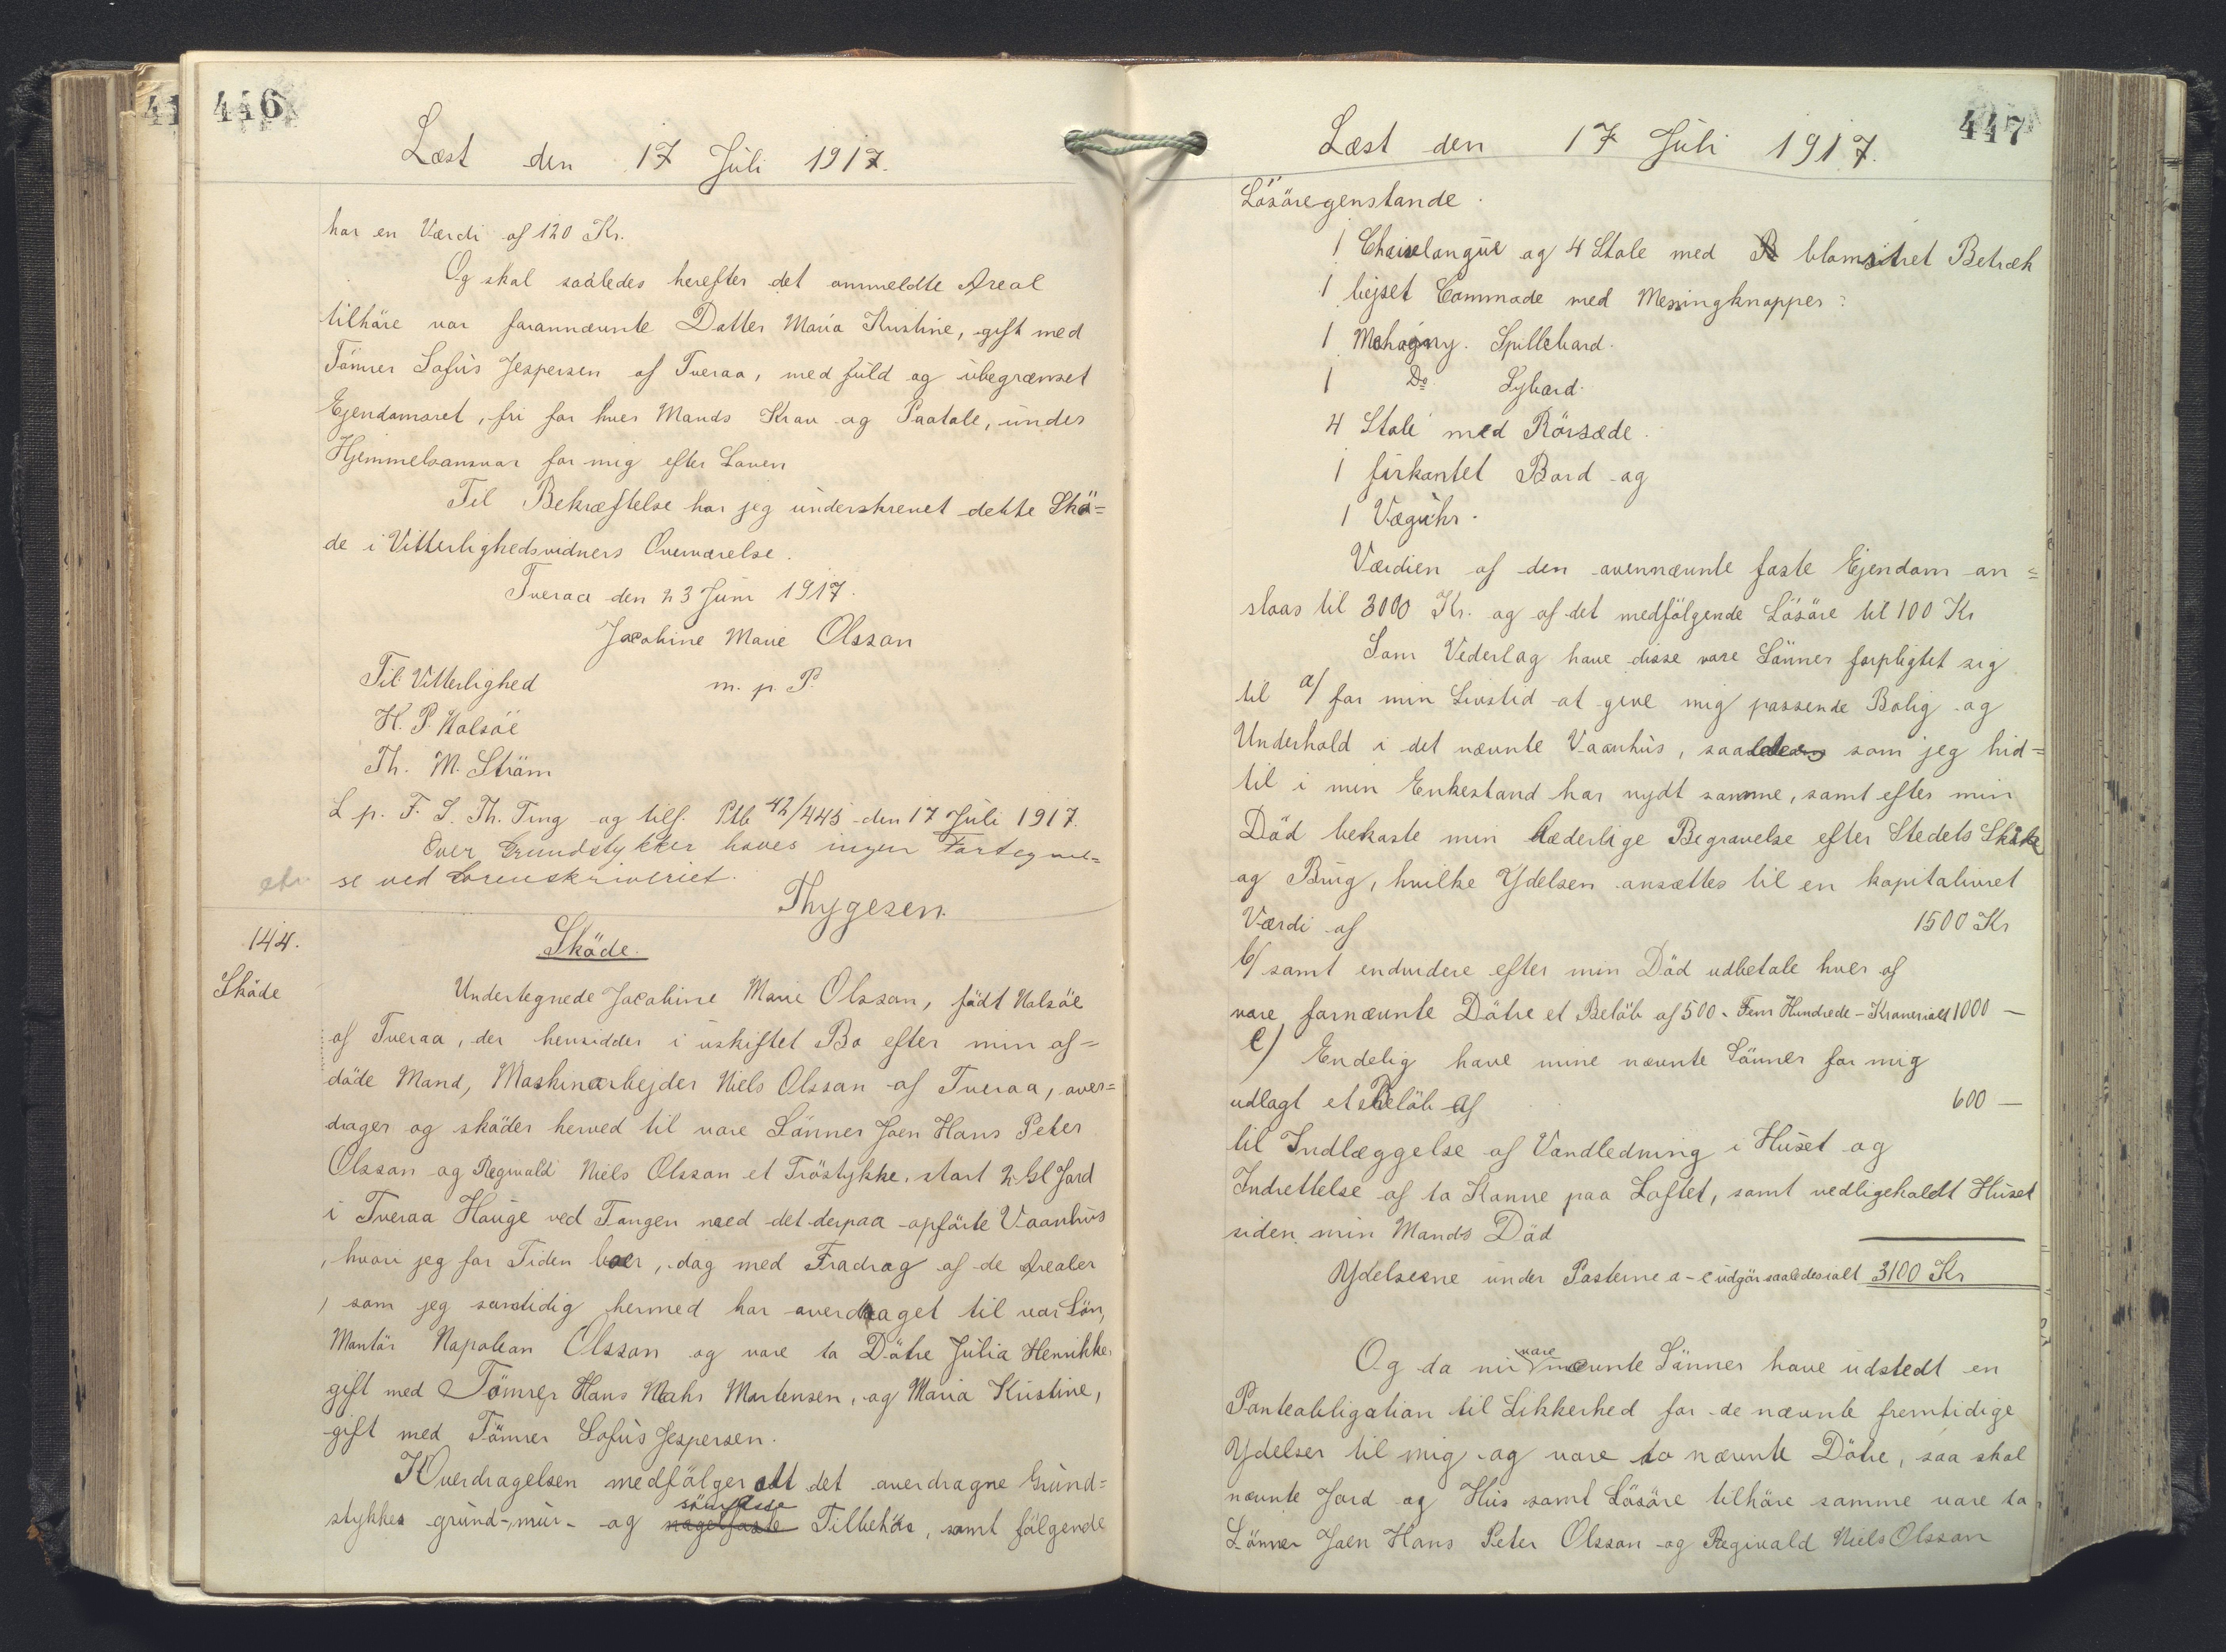 446
Læst den 17 Juli 1917.
har en Værdi af 120 Kr.
Og skal saaledes herefter det ommeldte Areal
tilhöre vor forannævnte Datter Maria Kristine, gift med
Tömrer Sofus Jespersen af Tveraa, med fuld og ubegrænset
Ejendomsret, fri for hver Mands Krav og Paatale, under
Hjemmelsansvar for mig efter Loven
Til Bekræftelse har jeg underskrevet dette Skö=
de i Vitterlighedsvidners Overværelse.
Tveraa den 23 Juni 1917.
Jacobine Marie Olsson
Til Vitterlighed m. p. P.
H. P. Nolsöe
Th. M. Ström
L p. F. S. Th. Ting og tilf. Ptb 42/445 den 17 Juli 1917.
Over Grundstykker haves ingen Fortegnel=
se ved Sorenskriveriet.
Thygesen.
144.
Sköde
Sköde.
Undertegnede Jacobine Marie Olsson, födt Nolsöe
af Tveraa, der hensidder i uskiftet Bo efter min af=
döde Mand, Maskinarbejder Niels Olsson af Tveraa, over=
drager og sköder herved til vore Sönner Joen Hans Peter
Olsson og Reginald Niels Olsson et Tröstykke, stort 2 Gl Jord
i Tveraa Hauge ved Tangen med det derpaa opförte Vaanhus
, hvori jeg for Tiden boer, dog med Fradrag af de Arealer
, som jeg samtidig hermed har overdraget til vor Sön,
Montör Napolean Olsson og vore to Dötre Julia Henrikke,
gift med Tömrer Hans Mohr Mortensen, og Maria Kristine,
gift med Tömrer Sofus Jespersen.
I Overdragelsen medfölger alt det overdragne Grund=
stykkes grund-, mur- og nagelfaste sömfaste Tilbehör, samt fölgende
447
Læst den 17 Juli 1917.
Lösöregenstande.
1 Chaiselongue og 4 Stole med blomstret Betræk
1 bejset Commode med Messingknapper:
1 Mahogny. Spillebord.
1 Do Sybord.
4 Stole med Rörsæde.
1 firkantet Bord og
1 Væguhr.
Værdien af den ovennævnte faste Ejendom an=
slaas til 3000 Kr. og af det medfölgende Lösöre til 100 Kr
Som Vederlag have disse vore Sönner forpligtet sig
til a/ for min Livstid at give mig passende Bolig og
Underhold i det nævnte Vaanhus, saaledes som jeg hid=
til i min Enkestand har nydt samme, samt efter min
Död bekoste min hæderlige Begravelse efter Stedets Skik
og Brug, hvilke Ydelsen ansættes til en kapitaliseret
Værdi af 1500 Kr
b/ samt endvidere efter min Död udbetale hver af
vore fornævnte Dötre et Belöb af 500 - Fem Hundrede - Kroner ialt 1000 —
c) Endelig have mine nævnte Sönner for mig
udlagt et Belöb af 600 —
til Indlæggelse af Vandledning i Huset og
Indrettelse af to Kamre paa Loftet, samt vedligeholdt Huset
siden min Mands Död
Ydelserne under Posterne a-c udgör saaledes ialt 3100 Kr
Og da nu vore nævnte Sönner have udstedt en
Panteobligation til Sikkerhed for de nævnte fremtidige
Ydelser til mig og vore to nævnte Dötre, saa skal
nævnte Jord og Hus samt Lösöre tilhöre samme vore to
Sönner Joen Hans Peter Olsson og Reginald Niels Olsson